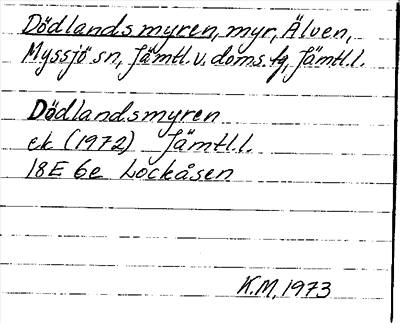 Dödlandsmyren, myr, Älven,
Myssjö sn, Jämtl. v. doms. fg, Jämtl. l.
Dödlandsmyren
ek (1972) Jämtl. l.
18E 6e Lockåsen
K.M, 1973